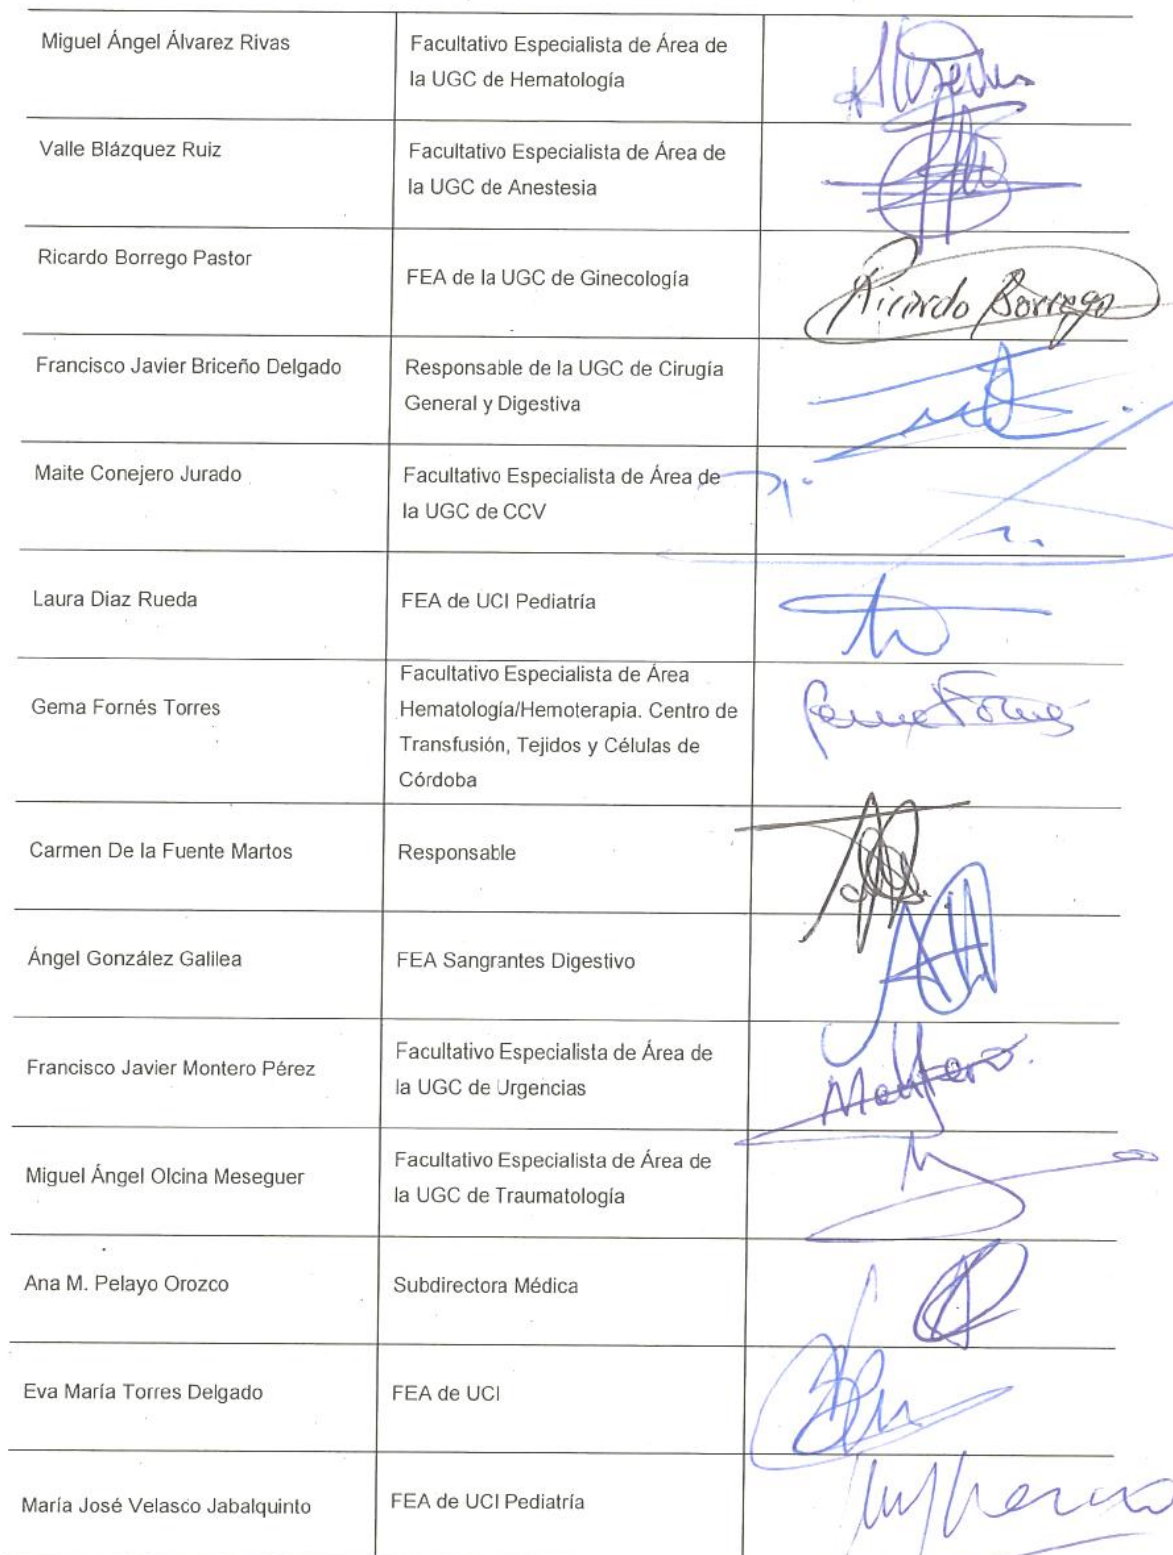 Miguel Ángel Álvarez Rivas
Facultativo Especialista de Área de
la UGC de Hematología
Valle Blázquez Ruiz
Facultativo Especialista de Área de
la UGC de Anestesia
Ricardo Borrego Pastor
FEA de la UGC de Ginecología
Ricardo Borrego
Francisco Javier Briceño Delgado
Responsable de la UGC de Cirugía
General y Digestiva
Maite Conejero Jurado
Facultativo Especialista de Área de
la UGC de CCV
Laura Diaz Rueda
FEA de UCI Pediatría
Gema Fornés Torres
Facultativo Especialista de Área
Hematología/Hemoterapia. Centro de
Transfusión, Tejidos y Células de
Córdoba
Gema Fornés
Carmen De la Fuente Martos
Responsable
Ángel González Galilea
FEA Sangrantes Digestivo
Francisco Javier Montero Pérez
Facultativo Especialista de Área de
la UGC de Urgencias
Montero
Miguel Ángel Olcina Meseguer
Facultativo Especialista de Área de
la UGC de Traumatología
Ana M. Pelayo Orozco
Subdirectora Médica
Eva María Torres Delgado
FEA de UCI
María José Velasco Jabalquinto
FEA de UCI Pediatría